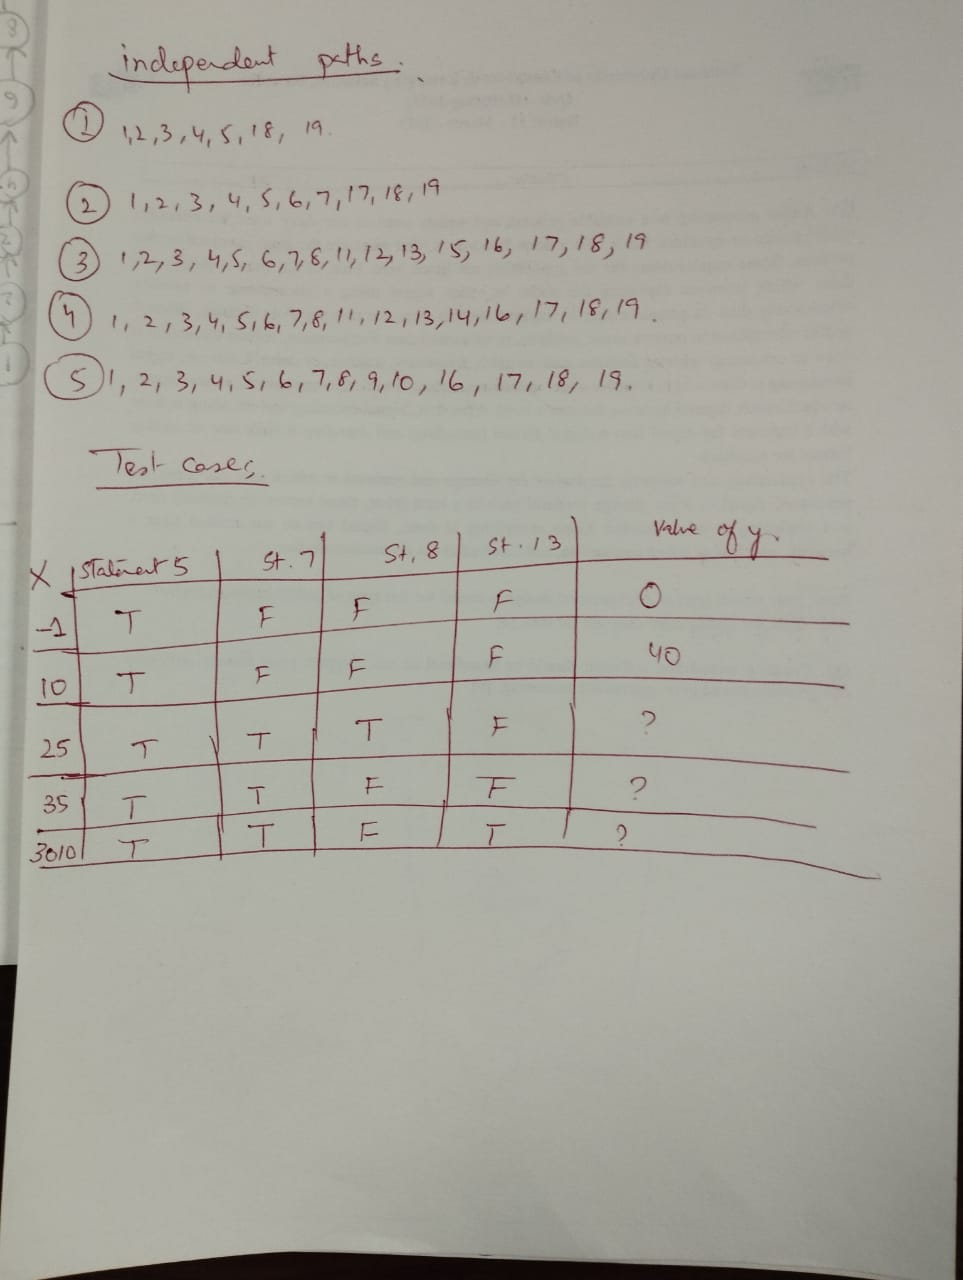 independent paths.
① 1,2,3,4,5,18, 19.
② 1,2,3,4,5,6,7,17,18,19
③ 1,2,3,4,5,6,7,8,11,12,13,15,16,17,18,19
④ 1,2,3,4,5,6,7,8,11,12,13,14,16,17,18,19.
⑤ 1,2,3,4,5,6,7,8,9,10,16,17,18,19.
Test cases.
X Statement 5 St. 7 St, 8 St. 13 Value of y.
-1 T F F F 0
10 T F F F 40
25 T T T F ?
35 T T F F ?
3010 T T F T ?